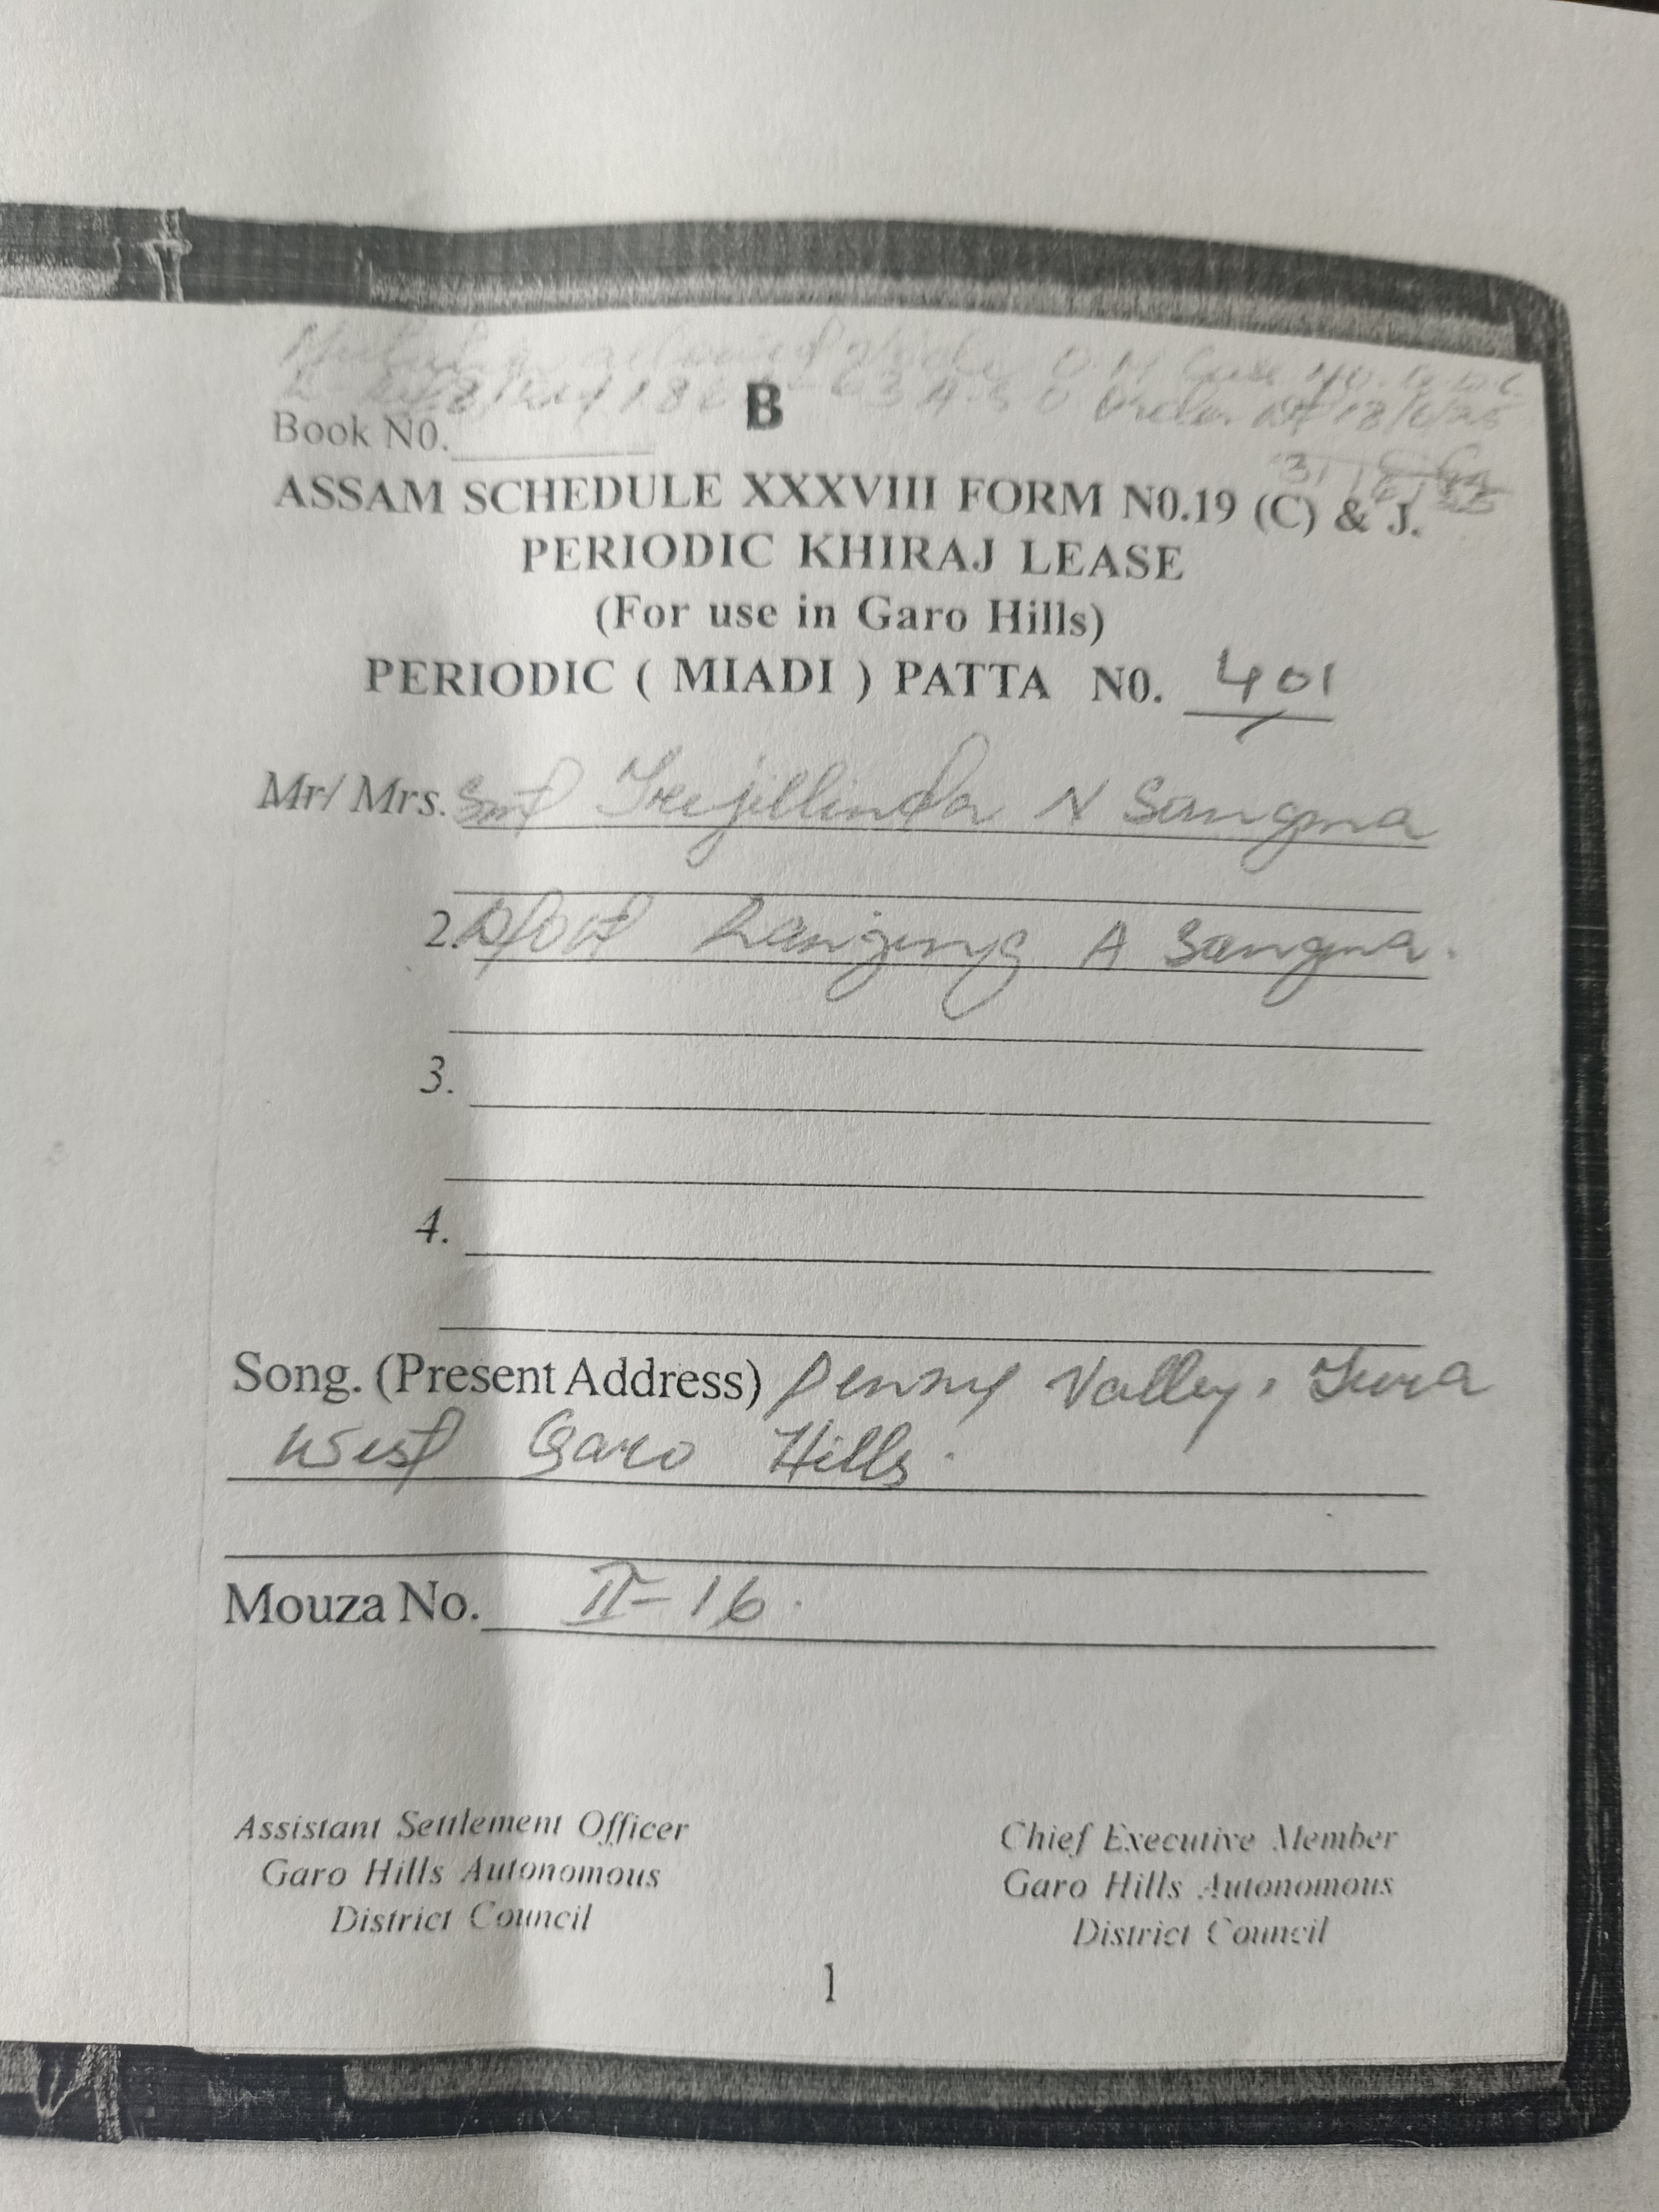 allowed vide O.M Case No. G.D.C.
A.S.O Order Dt 13/6/25
B
Book N0.
ASSAM SCHEDULE XXXVIII FORM N0.19 (C) & J.
PERIODIC KHIRAJ LEASE
(For use in Garo Hills)
PERIODIC ( MIADI ) PATTA N0. 401
Mr/ Mrs. Smt Trejillinda N Sangma
2. A Sangma.
3.
4.
Song. (Present Address) Denny Valley, Tura
West Garo Hills.
Mouza No. II-16.
Assistant Settlement Officer
Garo Hills Autonomous
District Council
Chief Executive Member
Garo Hills Autonomous
District Council
1